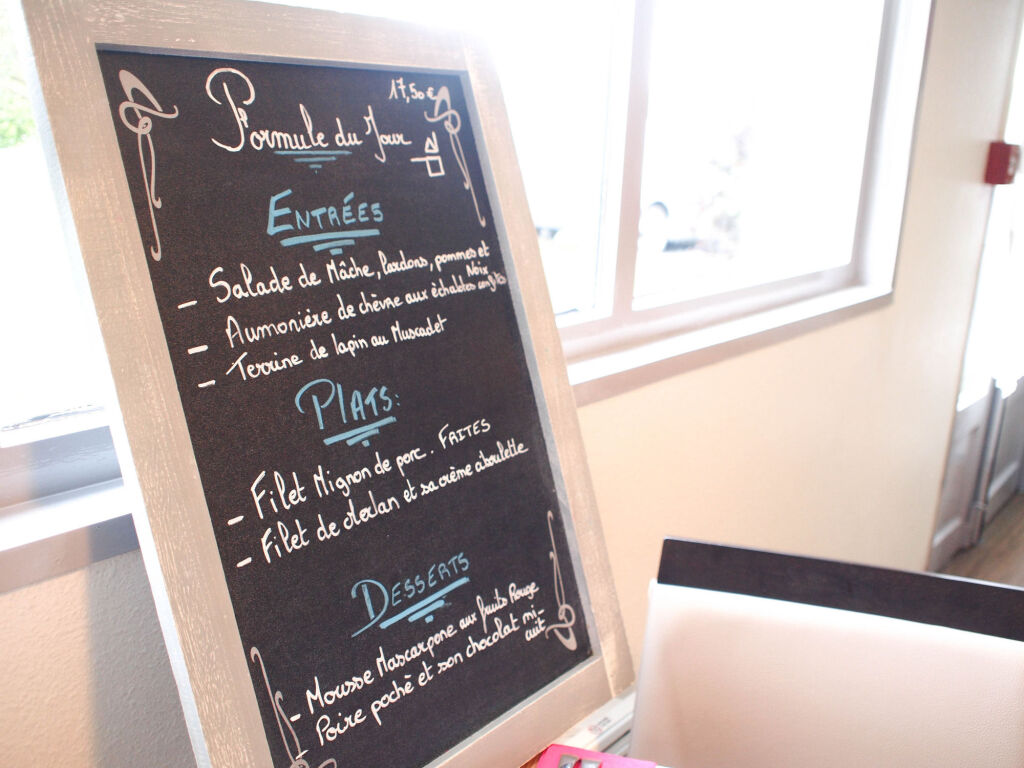 17,50 €
Formule du Jour
ENTRÉES
- Salade de Mâche, lardons, pommes et
Noix
- Aumonière de chèvre aux échalotes confites
- Terrine de lapin au Muscadet
PLATS:
- Filet Mignon de porc. FRITES
- Filet de Merlan et sa crème ciboulette
DESSERTS
- Mousse Mascarpone aux fruits Rouge
- Poire poché et son chocolat mi-
cuit